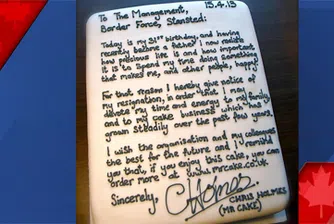 15.4.13
To The Management,
Border Force, Stansted:
Today is my 31st birthday, and having
recently become a father I now realise
how precious life is and how important
it is to spend my time doing something
that makes me, and other people, happy.
For that reason I hereby give notice of
my resignation, in order that I may
devote my time and energy to my family
and to my cake business which has
grown steadily over the past few years.
I wish the organisation and my colleagues
the best for the future and I remind
you that, if you enjoy this cake, you can
order more at www.mrcake.co.uk.
Sincerely,
CHolmes
CHRIS HOLMES
(MR CAKE)